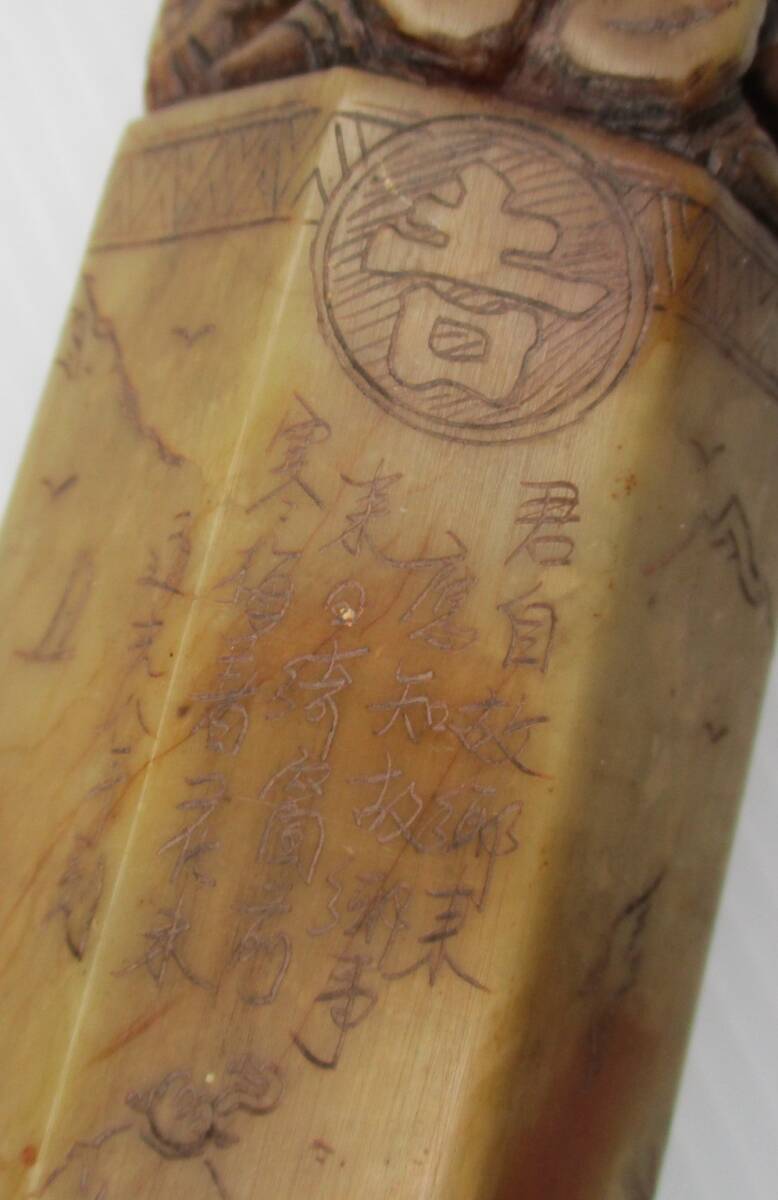 吉
君自故鄉来
應知故鄉事
来日綺窗前
寒梅著花未
道光八年